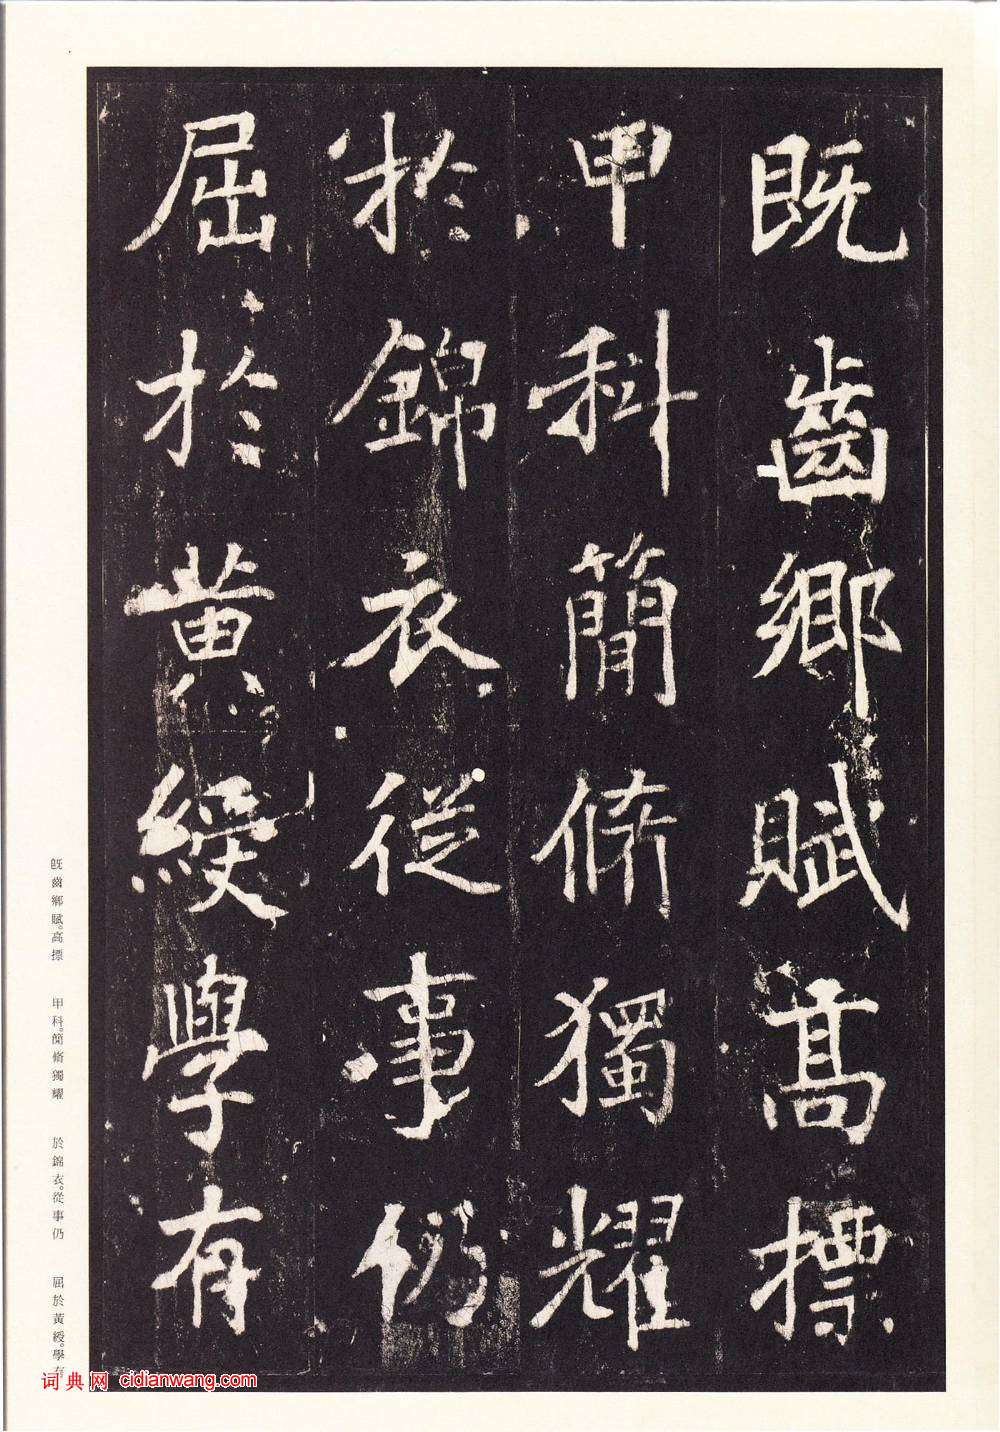 既齒鄉賦高標
甲科簡脩獨耀
於錦衣從事仍
屈於黃綬學有
既齒鄉賦。高標 甲科。簡脩獨耀 於錦衣。從事仍 屈於黃綬。學有
词典网 cidianwang.com